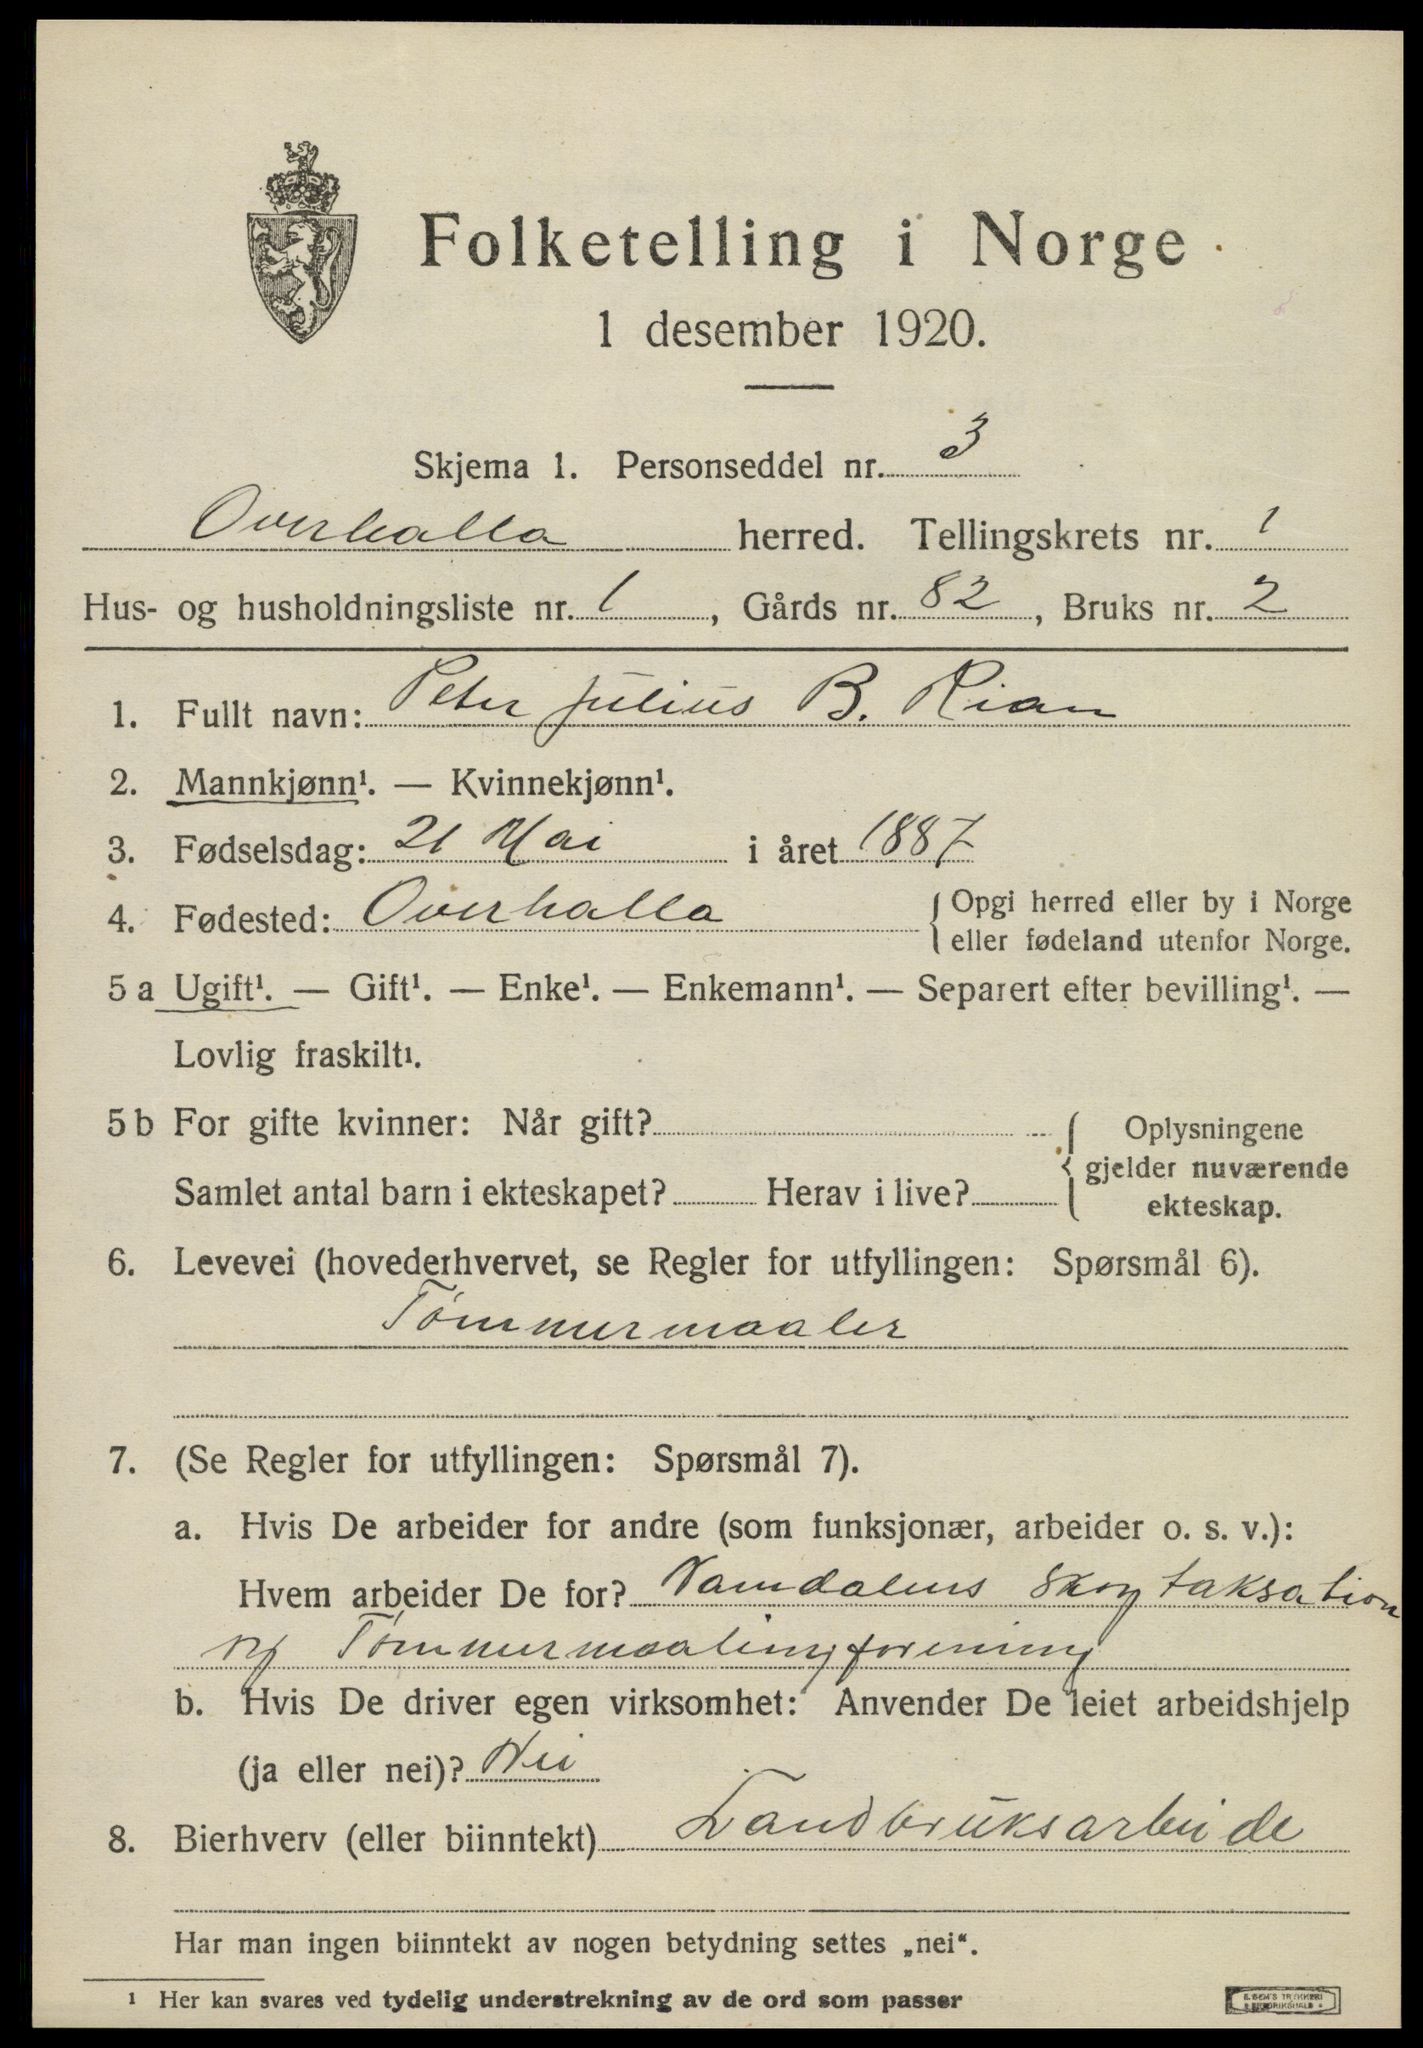 Folketelling i Norge
1 desember 1920.
Skjema 1. Personseddel nr. 3
Overhalla herred. Tellingskrets nr. 1
Hus- og husholdningsliste nr. 1, Gårds nr. 82, Bruks nr. 2
1. Fullt navn: Peter Julius B. Rian
2. Mannkjønn¹. — Kvinnekjønn¹.
3. Fødselsdag: 21 Mai i året 1887
4. Fødested: Overhalla {Opgi herred eller by i Norge
eller fødeland utenfor Norge.
5 a Ugift¹. — Gift¹. — Enke¹. — Enkemann¹. — Separert efter bevilling¹. —
Lovlig fraskilt¹.
5 b For gifte kvinner: Når gift? { Oplysningene
gjelder nuværende
Samlet antal barn i ekteskapet? Herav i live? ekteskap.
6. Levevei (hovederhvervet, se Regler for utfyllingen: Spørsmål 6).
Tømmermaaler
7. (Se Regler for utfyllingen: Spørsmål 7).
a. Hvis De arbeider for andre (som funksjonær, arbeider o. s. v.):
Hvem arbeider De for? Namdalens skogtaksation
og Tømmermaalingforening
b. Hvis De driver egen virksomhet: Anvender De leiet arbeidshjelp
(ja eller nei)? Nei
8. Bierhverv (eller biinntekt) Landbruksarbeide
Har man ingen biinntekt av nogen betydning settes „nei“.
¹ Her kan svares ved tydelig understrekning av de ord som passer